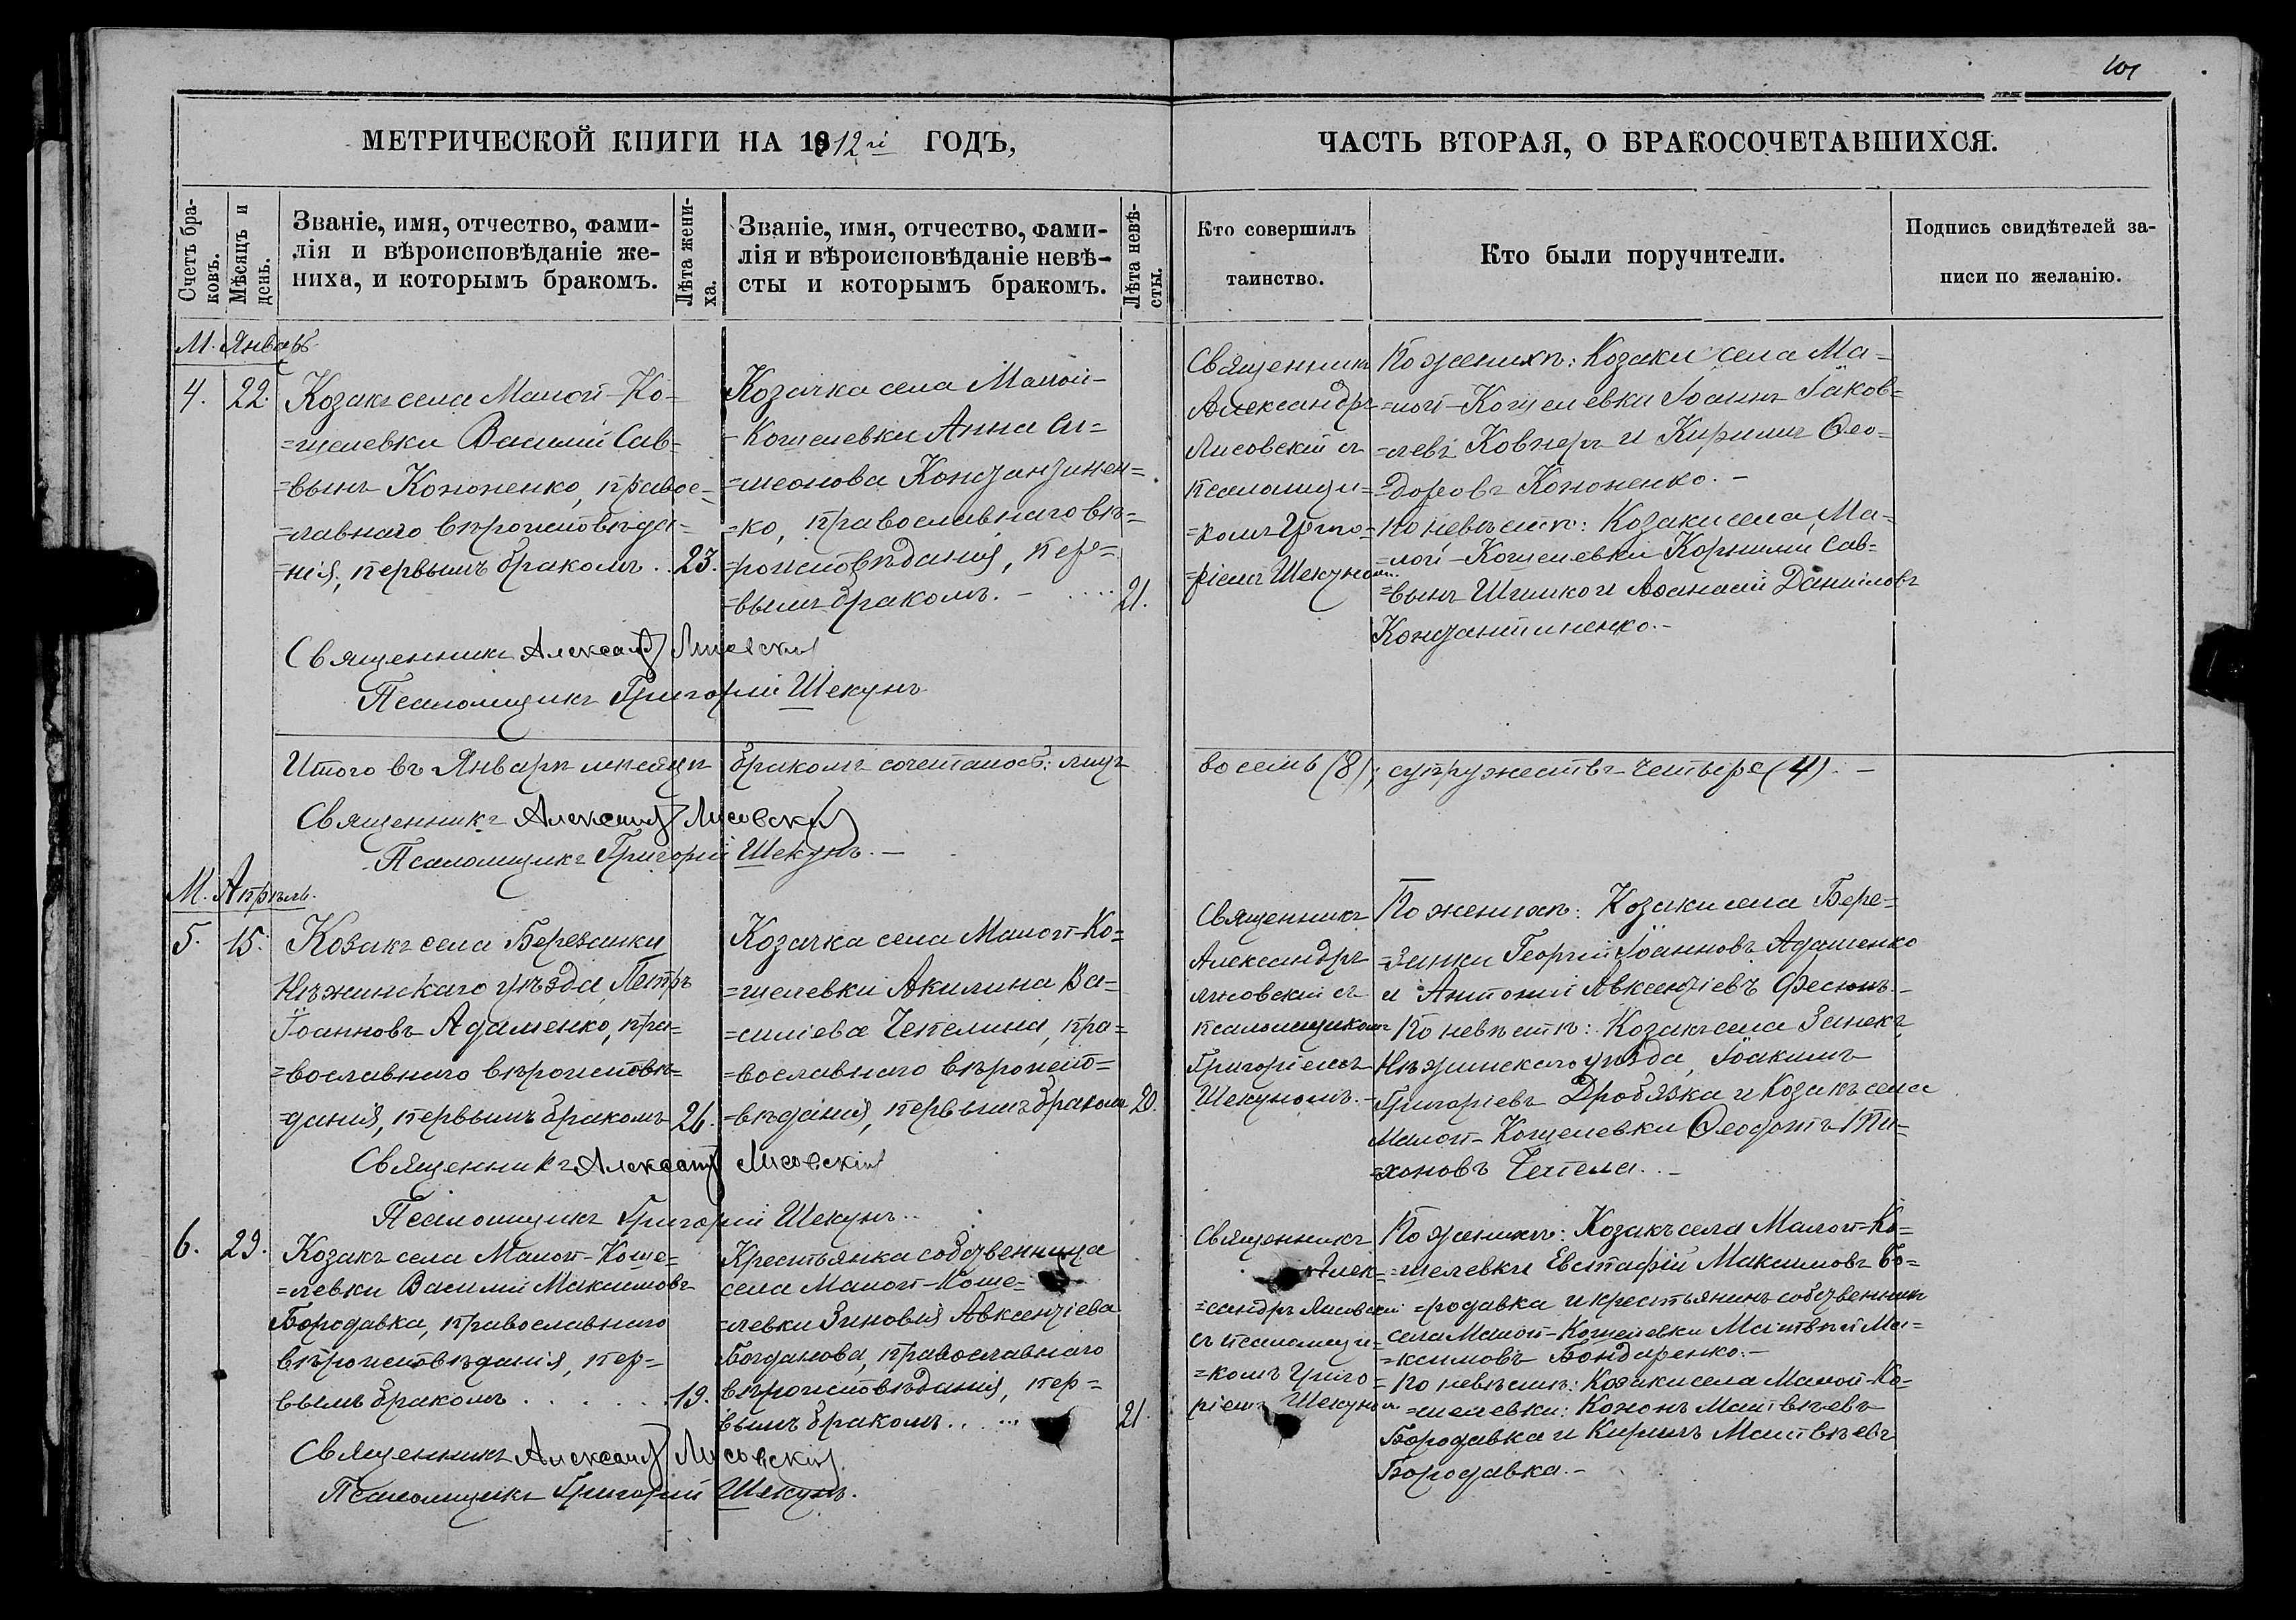 101
МЕТРИЧЕСКОЙ КНИГИ НА 1912й ГОДЪ,
ЧАСТЬ ВТОРАЯ, О БРАКОСОЧЕТАВШИХСЯ.
Счетъ бра-
ковъ.
Мѣсяцъ и
день.
Званіе, имя, отчество, фами-
лія и вѣроисповѣданіе же-
ниха, и которымъ бракомъ.
Лѣта жени-
ха.
Званіе, имя, отчество, фами-
лія и вѣроисповѣданіе невѣ-
сты и которымъ бракомъ.
Лѣта невѣ-
сты.
Кто совершилъ
таинство.
Кто были поручители.
Подпись свидѣтелей за-
писи по желанію.
М. Январь
4. 22.
Козакъ села Малой-Ко-
=шелевки Василій Сав-
=вынъ Кононенко, правос-
=лавнаго вѣроисповѣда-
=нія, первымъ бракомъ . 23.
Козачка села Малой-
-Кошелевки Анна Си=
=меонова Констанжинен=
=ко, православнаго вѣ=
=роисповѣданія, пер=
=вымъ бракомъ. - .... 21.
Священникъ
Александръ
Лисовскій съ
псаломщи=
=комъ Григо=
=ріемъ Шекуномъ.
По женихѣ: Козаки села Ма-
=лой-Кошелевки Іоаннъ Іаков=
=левъ Ковнеръ и Кириллъ Ѳео=
=доровъ Кононенко. -
По невѣстѣ: Козаки села Ма-
=лой-Кошелевки Корнилій Сав=
=вынъ Шишко и Аѳанасій Даниловъ
Константиненко.-
Священникъ Александръ Лисовскій
Псаломщикъ Григорій Шекунъ
Итого въ Январѣ мѣсяцѣ бракомъ сочеталось: лицъ
восемь (8); супружествъ четыре (4). -
Священникъ Александръ Лисовскій
Псаломщикъ Григорій Шекунъ. -
М. Апрѣль.
5. 15.
Козакъ села Березанки
Нѣжинскаго уѣзда, Петръ
Іоанновъ Адаменко, пра=
=вославнаго вѣроисповѣ=
=данія, первымъ бракомъ 26.
Козачка села Малой-Ко=
=шелевки Акилина Ва=
=силіева Чепелина, пра=
=вославнаго вѣроиспо=
=вѣданія, первымъ бракомъ 20.
Священникъ
Александръ
Лисовскій съ
псаломщикомъ
Григоріемъ
Шекуномъ. -
По женихѣ: Козаки села Бере=
=занки Георгій Іоанновъ Адаменко
и Антоній Авксентіевъ Фесюнъ.-
По невѣстѣ: Козакъ села
Нѣжинскаго уѣзда, Іоакимъ
Григоріевъ Дробязка и Козакъ села
Малой-Кошелевки Ѳеодотъ Ти=
=хоновъ Чепела. . -
Священникъ Александръ Лисовскій
Псаломщикъ Григорій Шекунъ..
6. 29.
Козакъ села Малой-Коше=
=левки Василій Максимовъ
Бородавка, православнаго
вѣроисповѣданія, пер=
вымъ бракомъ . . . . . . . 19.
Крестьянка собственница
села Малой-Коше-
=левки Зиновія Авксентіева
Богданова, православнаго
вѣроисповѣданія, пер=
вымъ бракомъ. . ... 21.
Священникъ
Алек=
=сандръ Лисовскій
съ псаломщи=
=комъ Григо=
ріемъ Шекуномъ
По женихѣ: Козакъ села Малой-Ко=
=шелевки Евстафій Максимовъ Бо=
=родавка и крестьянинъ собственникъ
села Малой-Кошелевки Матвѣй Ма=
=ксимовъ Бондаренко.-
По невѣстѣ: Козаки села Малой-Ко-
=шелевки: Кононъ Матвѣевъ
Бородавка и Кириллъ Матвѣевъ
Бородавка.-
Священникъ Александръ Лисовскій
Псаломщикъ Григорій Шекунъ.